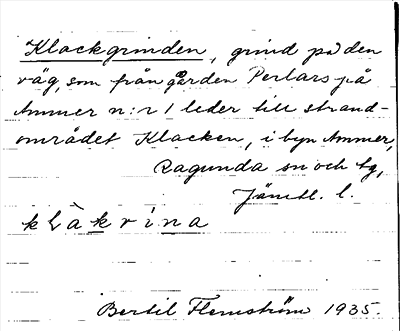 Klackgrinden, grind på den
väg, som från gården Perlars på
Ammer n:r 1 leder till strand-
området Klacken, i byn Ammer,
Ragunda sn och tg,
Jämtl. l.
klàkrina
Bertil Flemström 1935.